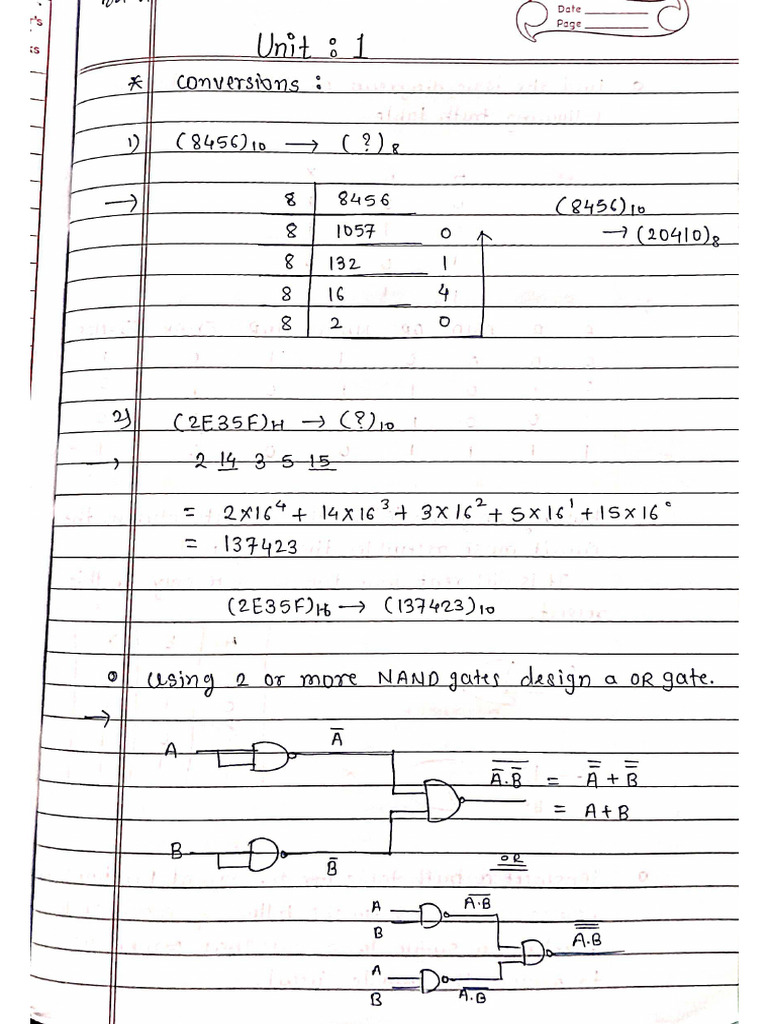 Date
Page
Unit : 1
* conversions :
1) (8456)10 → ( ? )8
→ 8 8456 (8456)10
8 1057 0 → (20410)8
8 132 1
8 16 4
8 2 0
2) (2E35F)H → (?)10
→ 2 14 3 5 15
= 2×16⁴ + 14×16³ + 3×16² + 5×16¹ + 15×16°
= 137423
(2E35F)16 → (137423)10
Using 2 or more NAND gates design a OR gate.
→
A A̅
\overline{A̅.B̅} = A̿ + B̿
= A+B
B B̅
OR
A \overline{A.B}
B
\overline{\overline{A.B}}
A
B \overline{A.B}